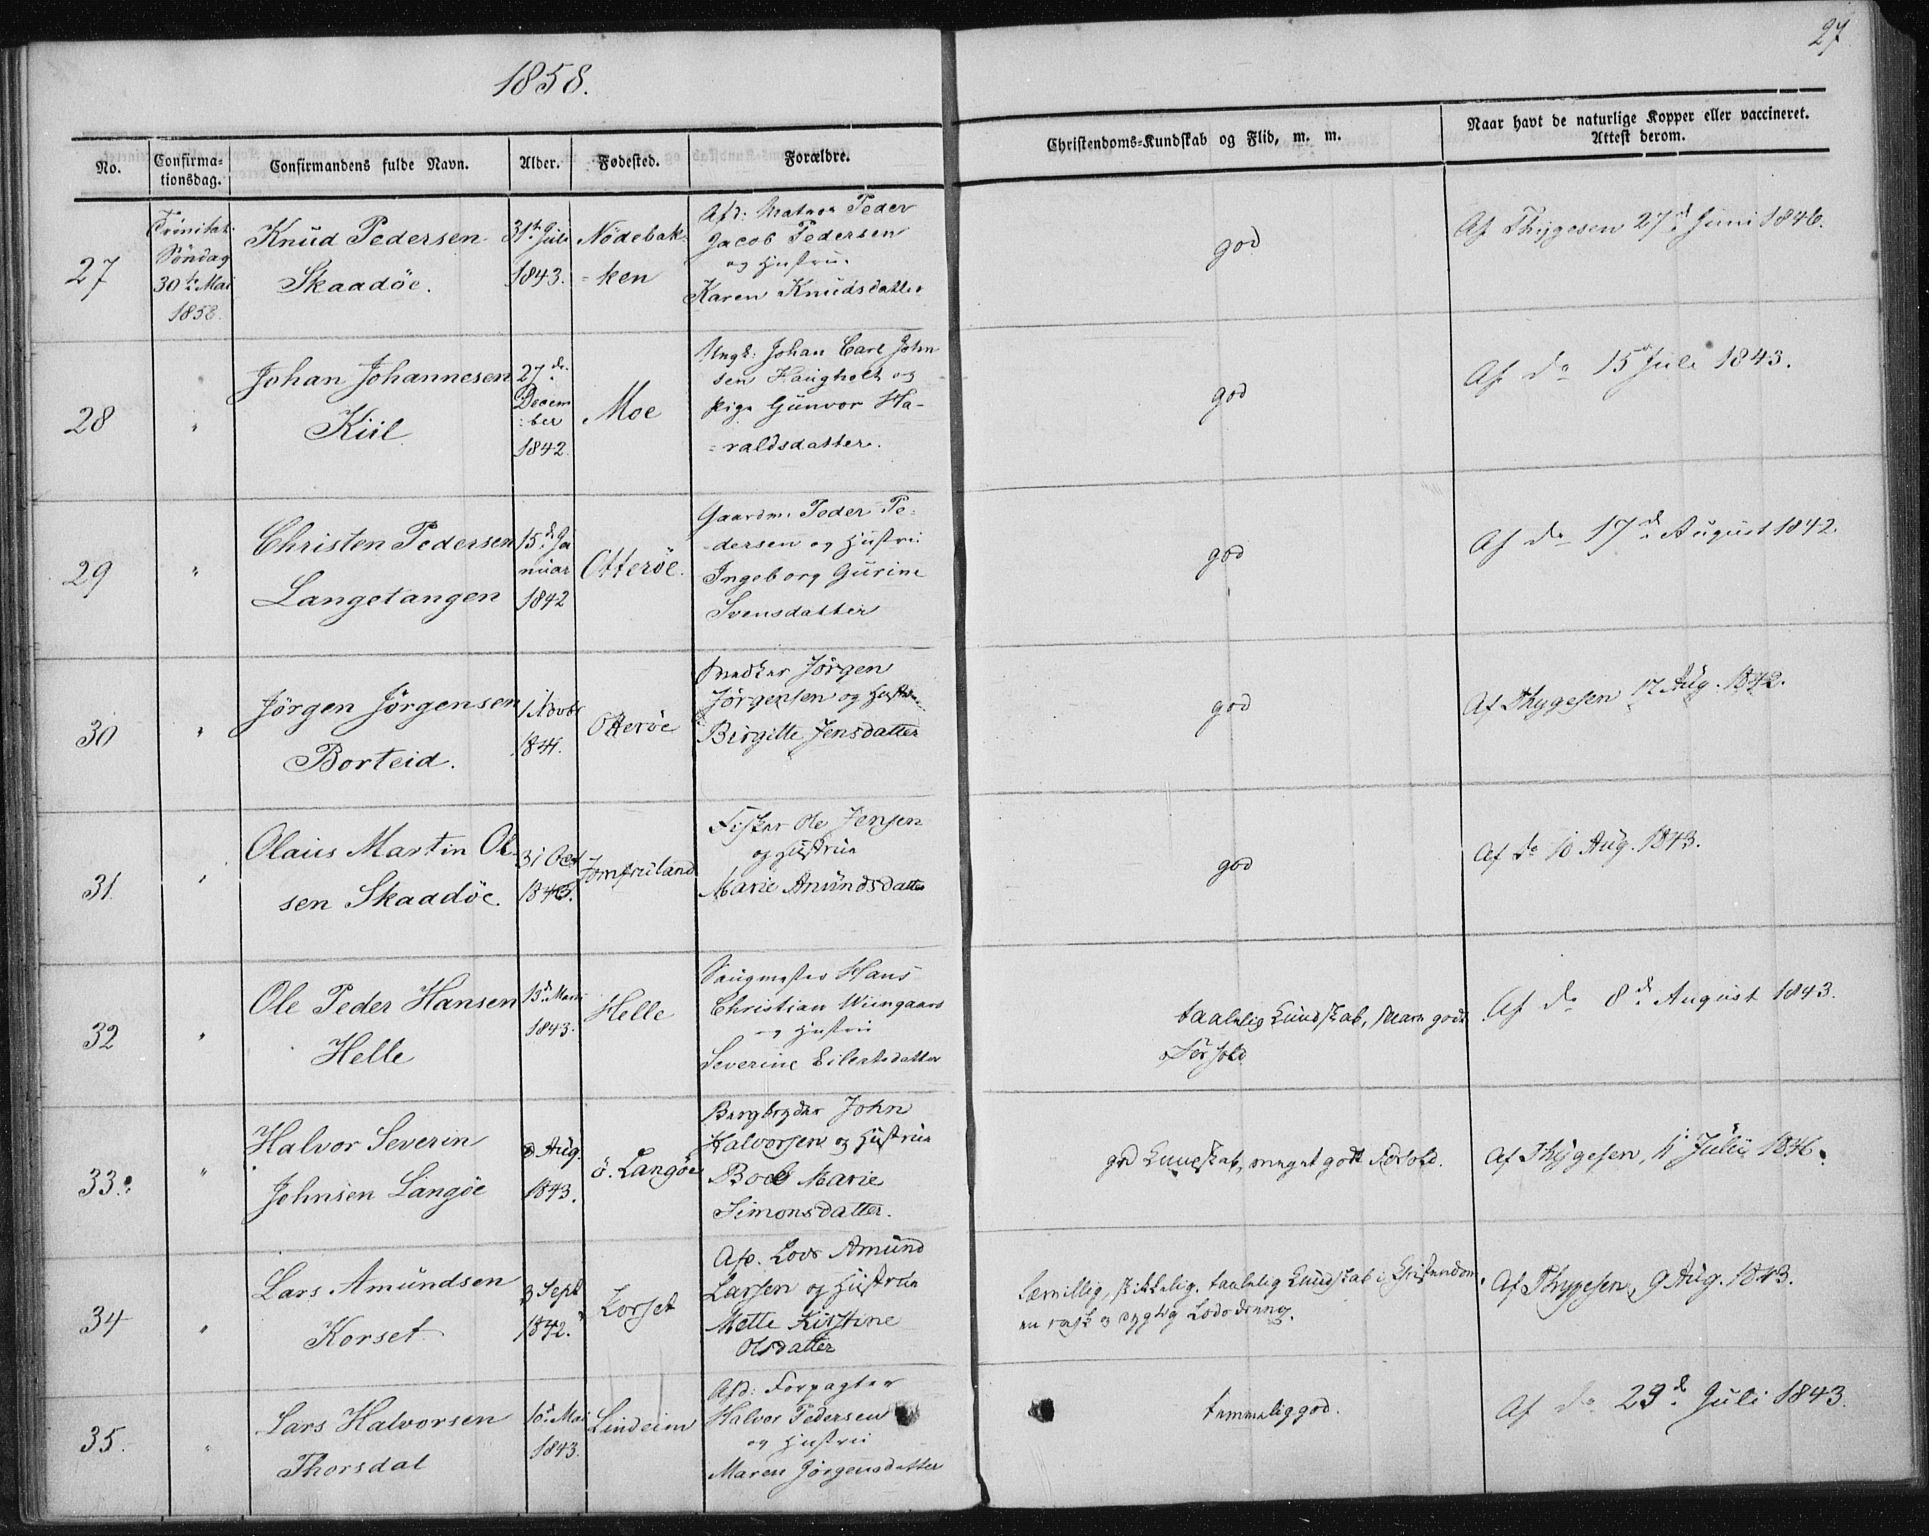 27
1858.
No.
Confirma-
tionsdag.
Confirmandens fulde Navn.
Alder.
Fødested.
Forældre.
Christendoms-Kundskab og Flid, m. m.
Naar havt de naturlige Kopper eller vaccineret.
Attest derom.
27
Trinitat.
Söndag
30te Mai
1858.
Knud Pedersen
Skaadöe.
31te Juli
1843.
Nödebak-
=ken
Afd: Matros Peder
Jacob Pedersen
og Hustru
Karen Knudsdatter
god
Af Thygesen 27d Juni 1846.
28
"
Johan Johannesen
Kiil
27de
Decem
:ber
1842.
Moe
Ungk: Johan Carl John
sen Haugholt og
Pige Gunvor Ha-
=raldsdatter.
god
Af do 15 Juli 1843.
29
"
Christen Pedersen
Langetangen
15d Ja
nuar
1842
Otteröe.
Gaardm. Peder Pe-
dersen og Hustru
Ingeborg Gurine
Svensdatter
god
Af do 17d August 1842.
30
"
Jörgen Jörgensen
Borteid.
1 Novbr
1841.
Otteröe
Jörgen
Jörgensen og Hustru
Birgitte Jensdatter
god
Af Thygesen 17 Aug. 1842.
31.
"
Olaus Martin Ol-
sen Skaadöe.
31 Oct
Jomfruland
Fisker Ole Jensen
og Hustrue
Marie Amundsdatter
god
Af do 10 Aug. 1843.
32
"
Ole Peder Hansen
Helle
13d Marts
1843.
Helle
Saugmester Hans
Christian Wiingaard
og Hustru
Severine Eilertsdatter
taalelig Kundskab, godt
Forhold.
Af do 8d August 1843.
33.
"
Halvor Severin
Johnsen Langöe
Aug.
1843.
ö. Langöe
John
Halvorsen og Hustrue
Boel Marie
Simonsdatter.
god Kundskab, meget godt Forhold.
Af Thygesen, Julii 1846.
34
"
Lars Amundsen
Korset
3 Sept
1842.
Korset
Afd. Lods Amund
Larsen og Hustrue
Mette Kirstine
Olsdatter
Lærvillig, skikkelig, taalelig Kundskab i Christendom,
en rask og dygtig Lodsdreng.
Af Thygesen, 9 Aug. 1843.
35.
"
Lars Halvorsen
Thorsdal
10d Mai
1843.
Lindeim
Afd: Forpagter
Halvor Pedersen
og Hustru
Maren Jörgensdatter
temmelig god.
Af do 29d Juli 1843.